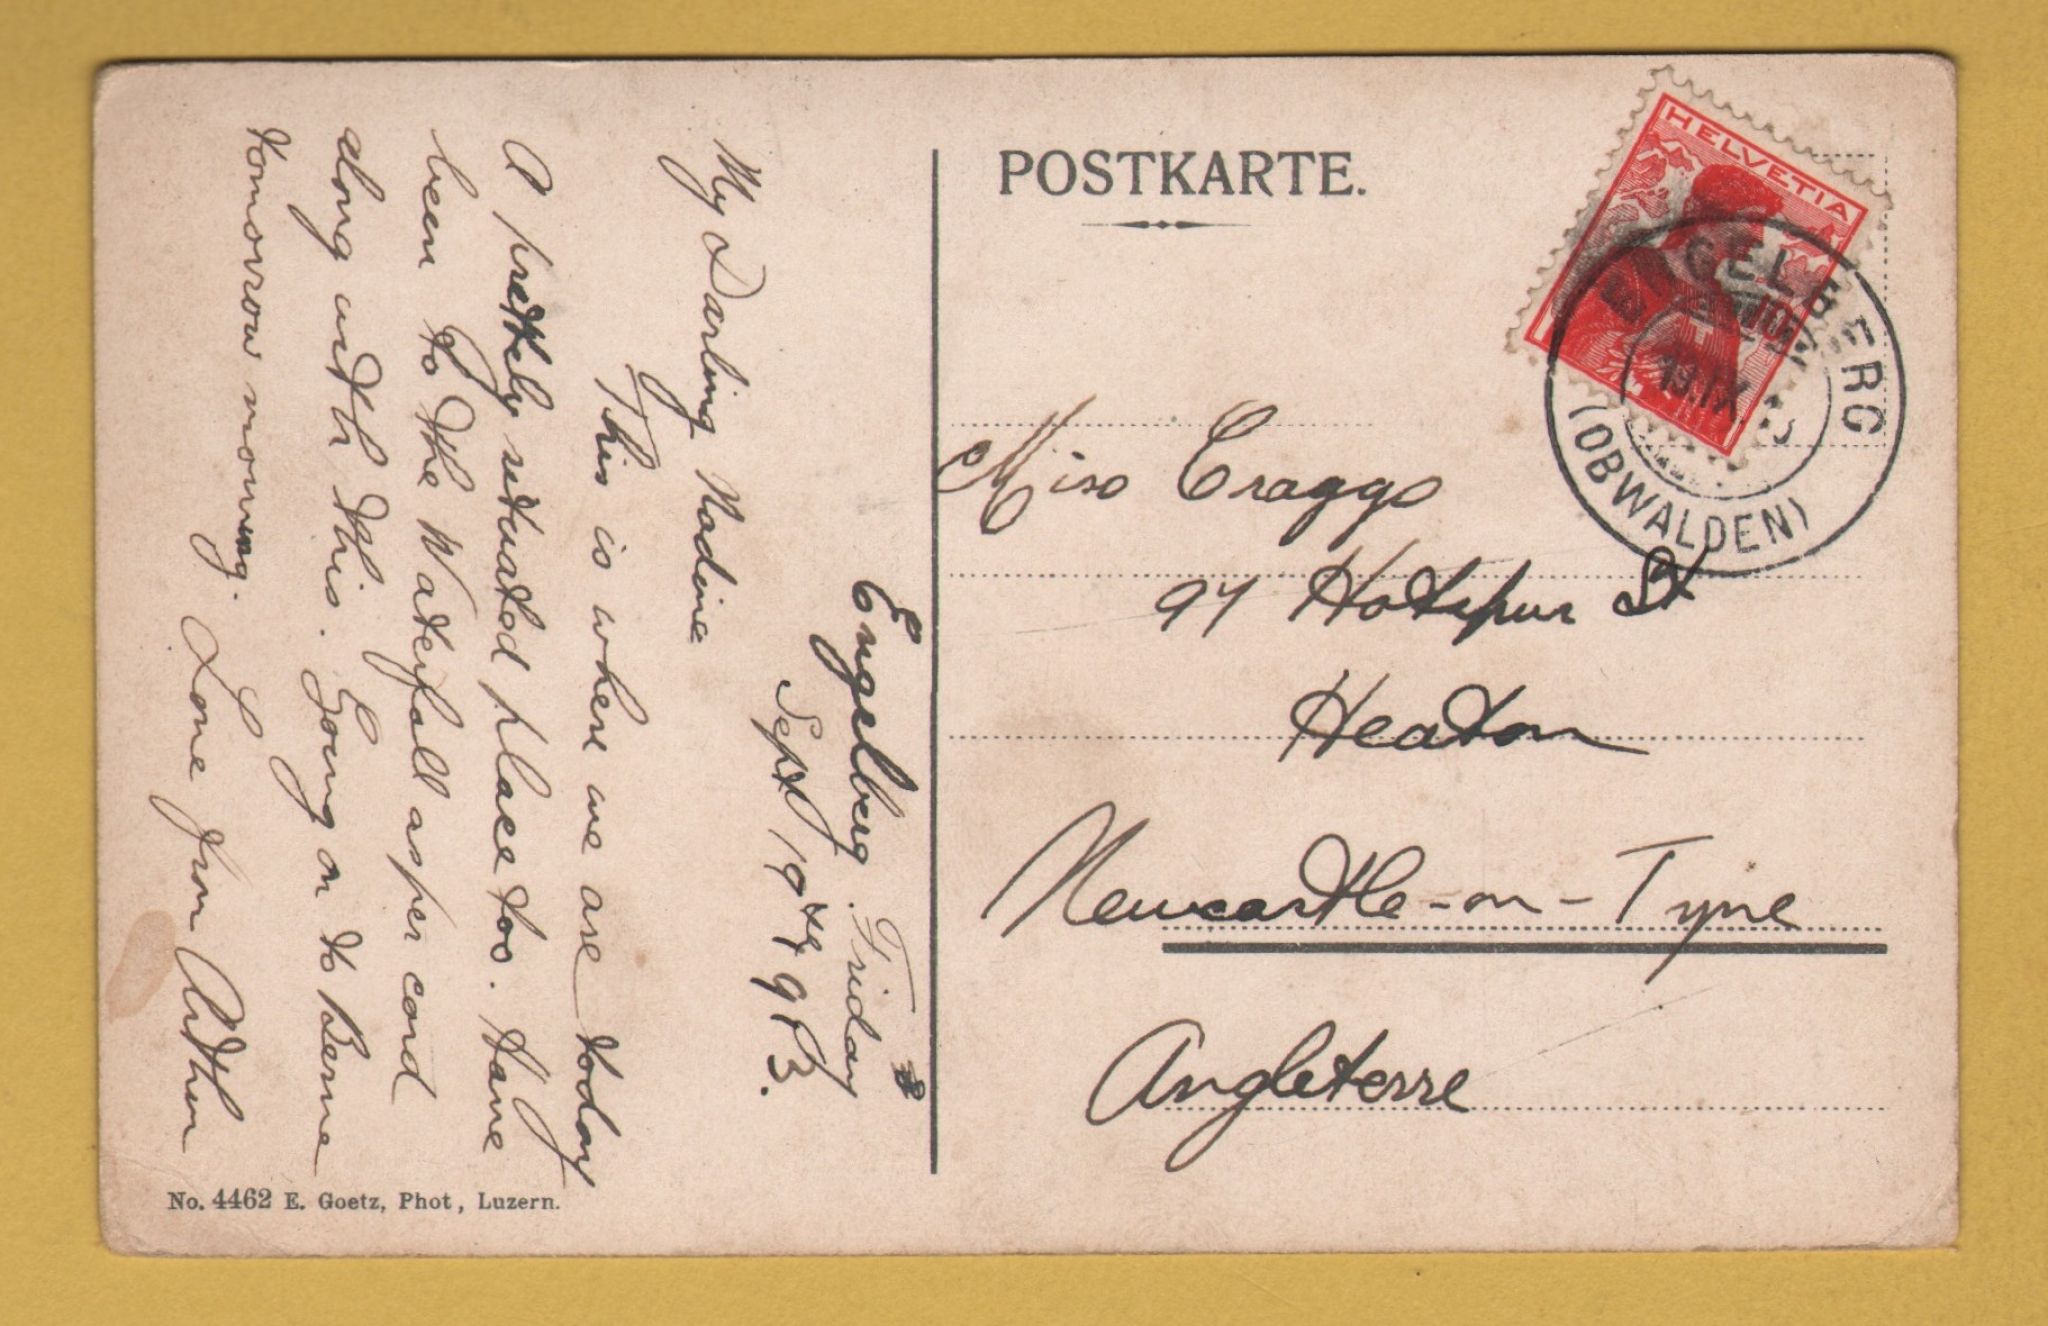 Engelberg. Friday
Sept 19th 1913.
My Darling Nadine
This is where we are today
A prettily situated place too. Have
been to the Waterfall as per card
along with this. Going on to Berne
tomorrow morning.
Love from Arthur
No. 4462 E. Goetz, Phot, Luzern.
POSTKARTE.
HELVETIA
ENGELBERG
19.IX
(OBWALDEN)
Miss Craggs
97 Hotspur St
Heaton
Newcastle-on-Tyne
Angleterre